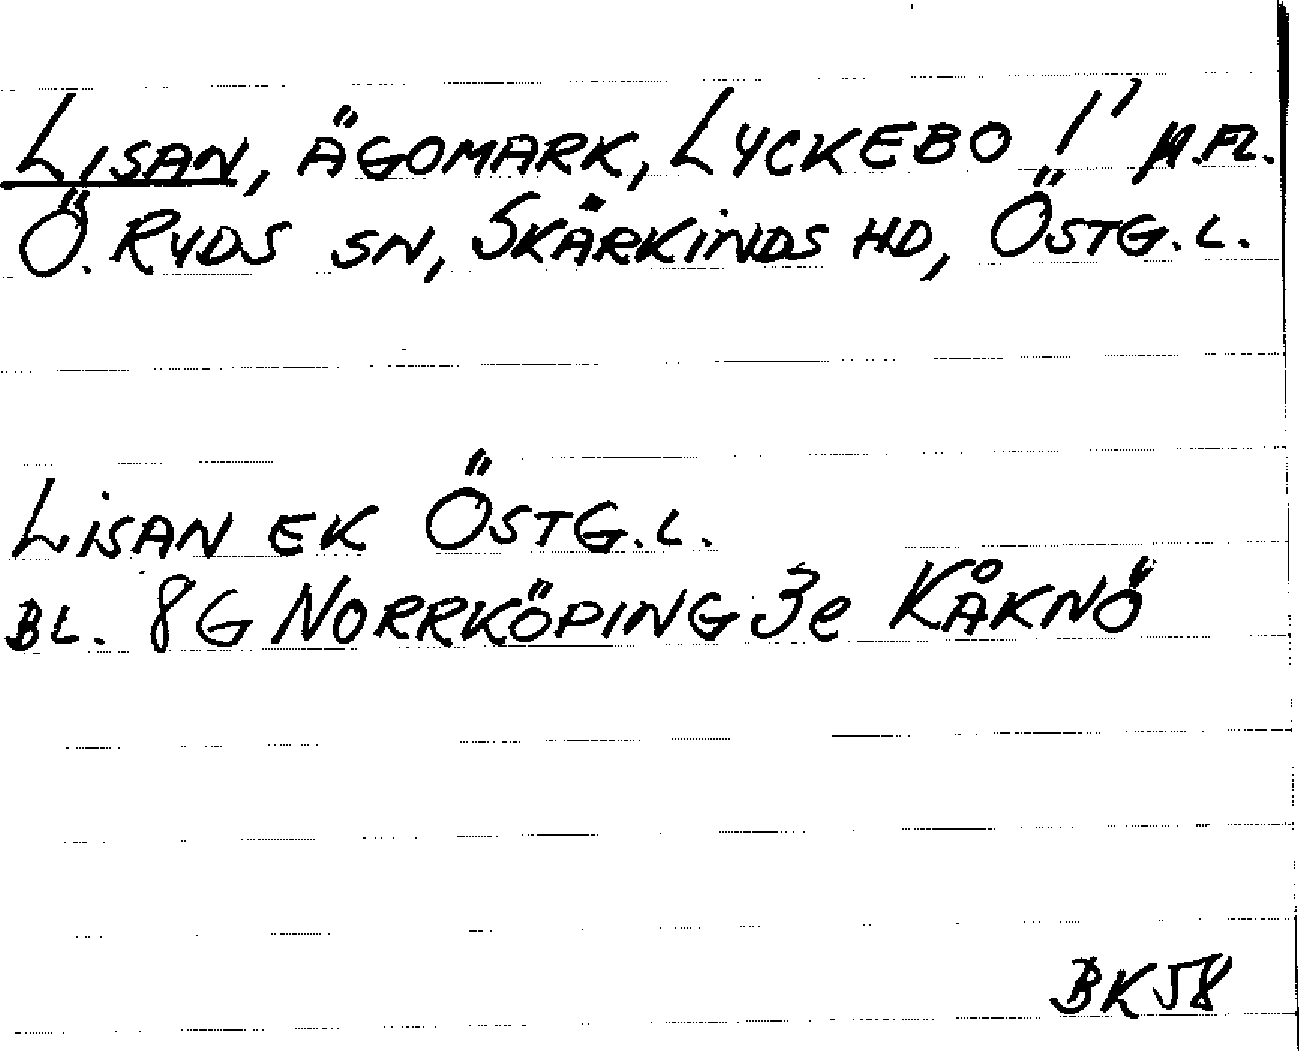 LISAN, ÄGOMARK, LYCKEBO 1' M.FL.
Ö. RYDS SN, SKÄRKINDS HD, ÖSTG. L.
LISAN EK ÖSTG. L.
BL. 8G NORRKÖPING 3e KÅKNÖ
BK58